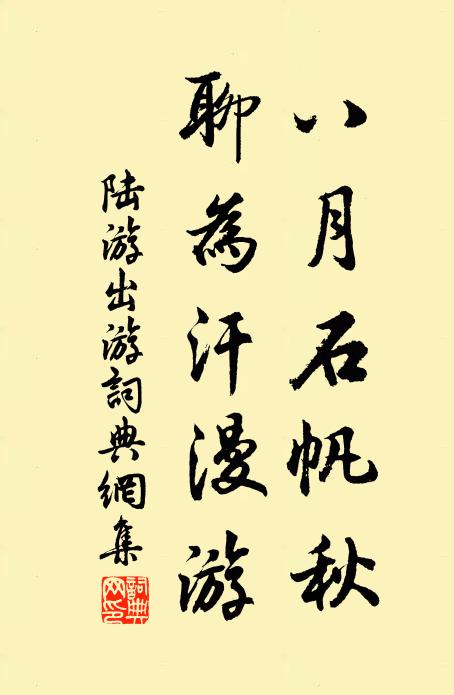 八月石帆秋
聊為汗漫游
陆游出游詞典網集
詞典网印